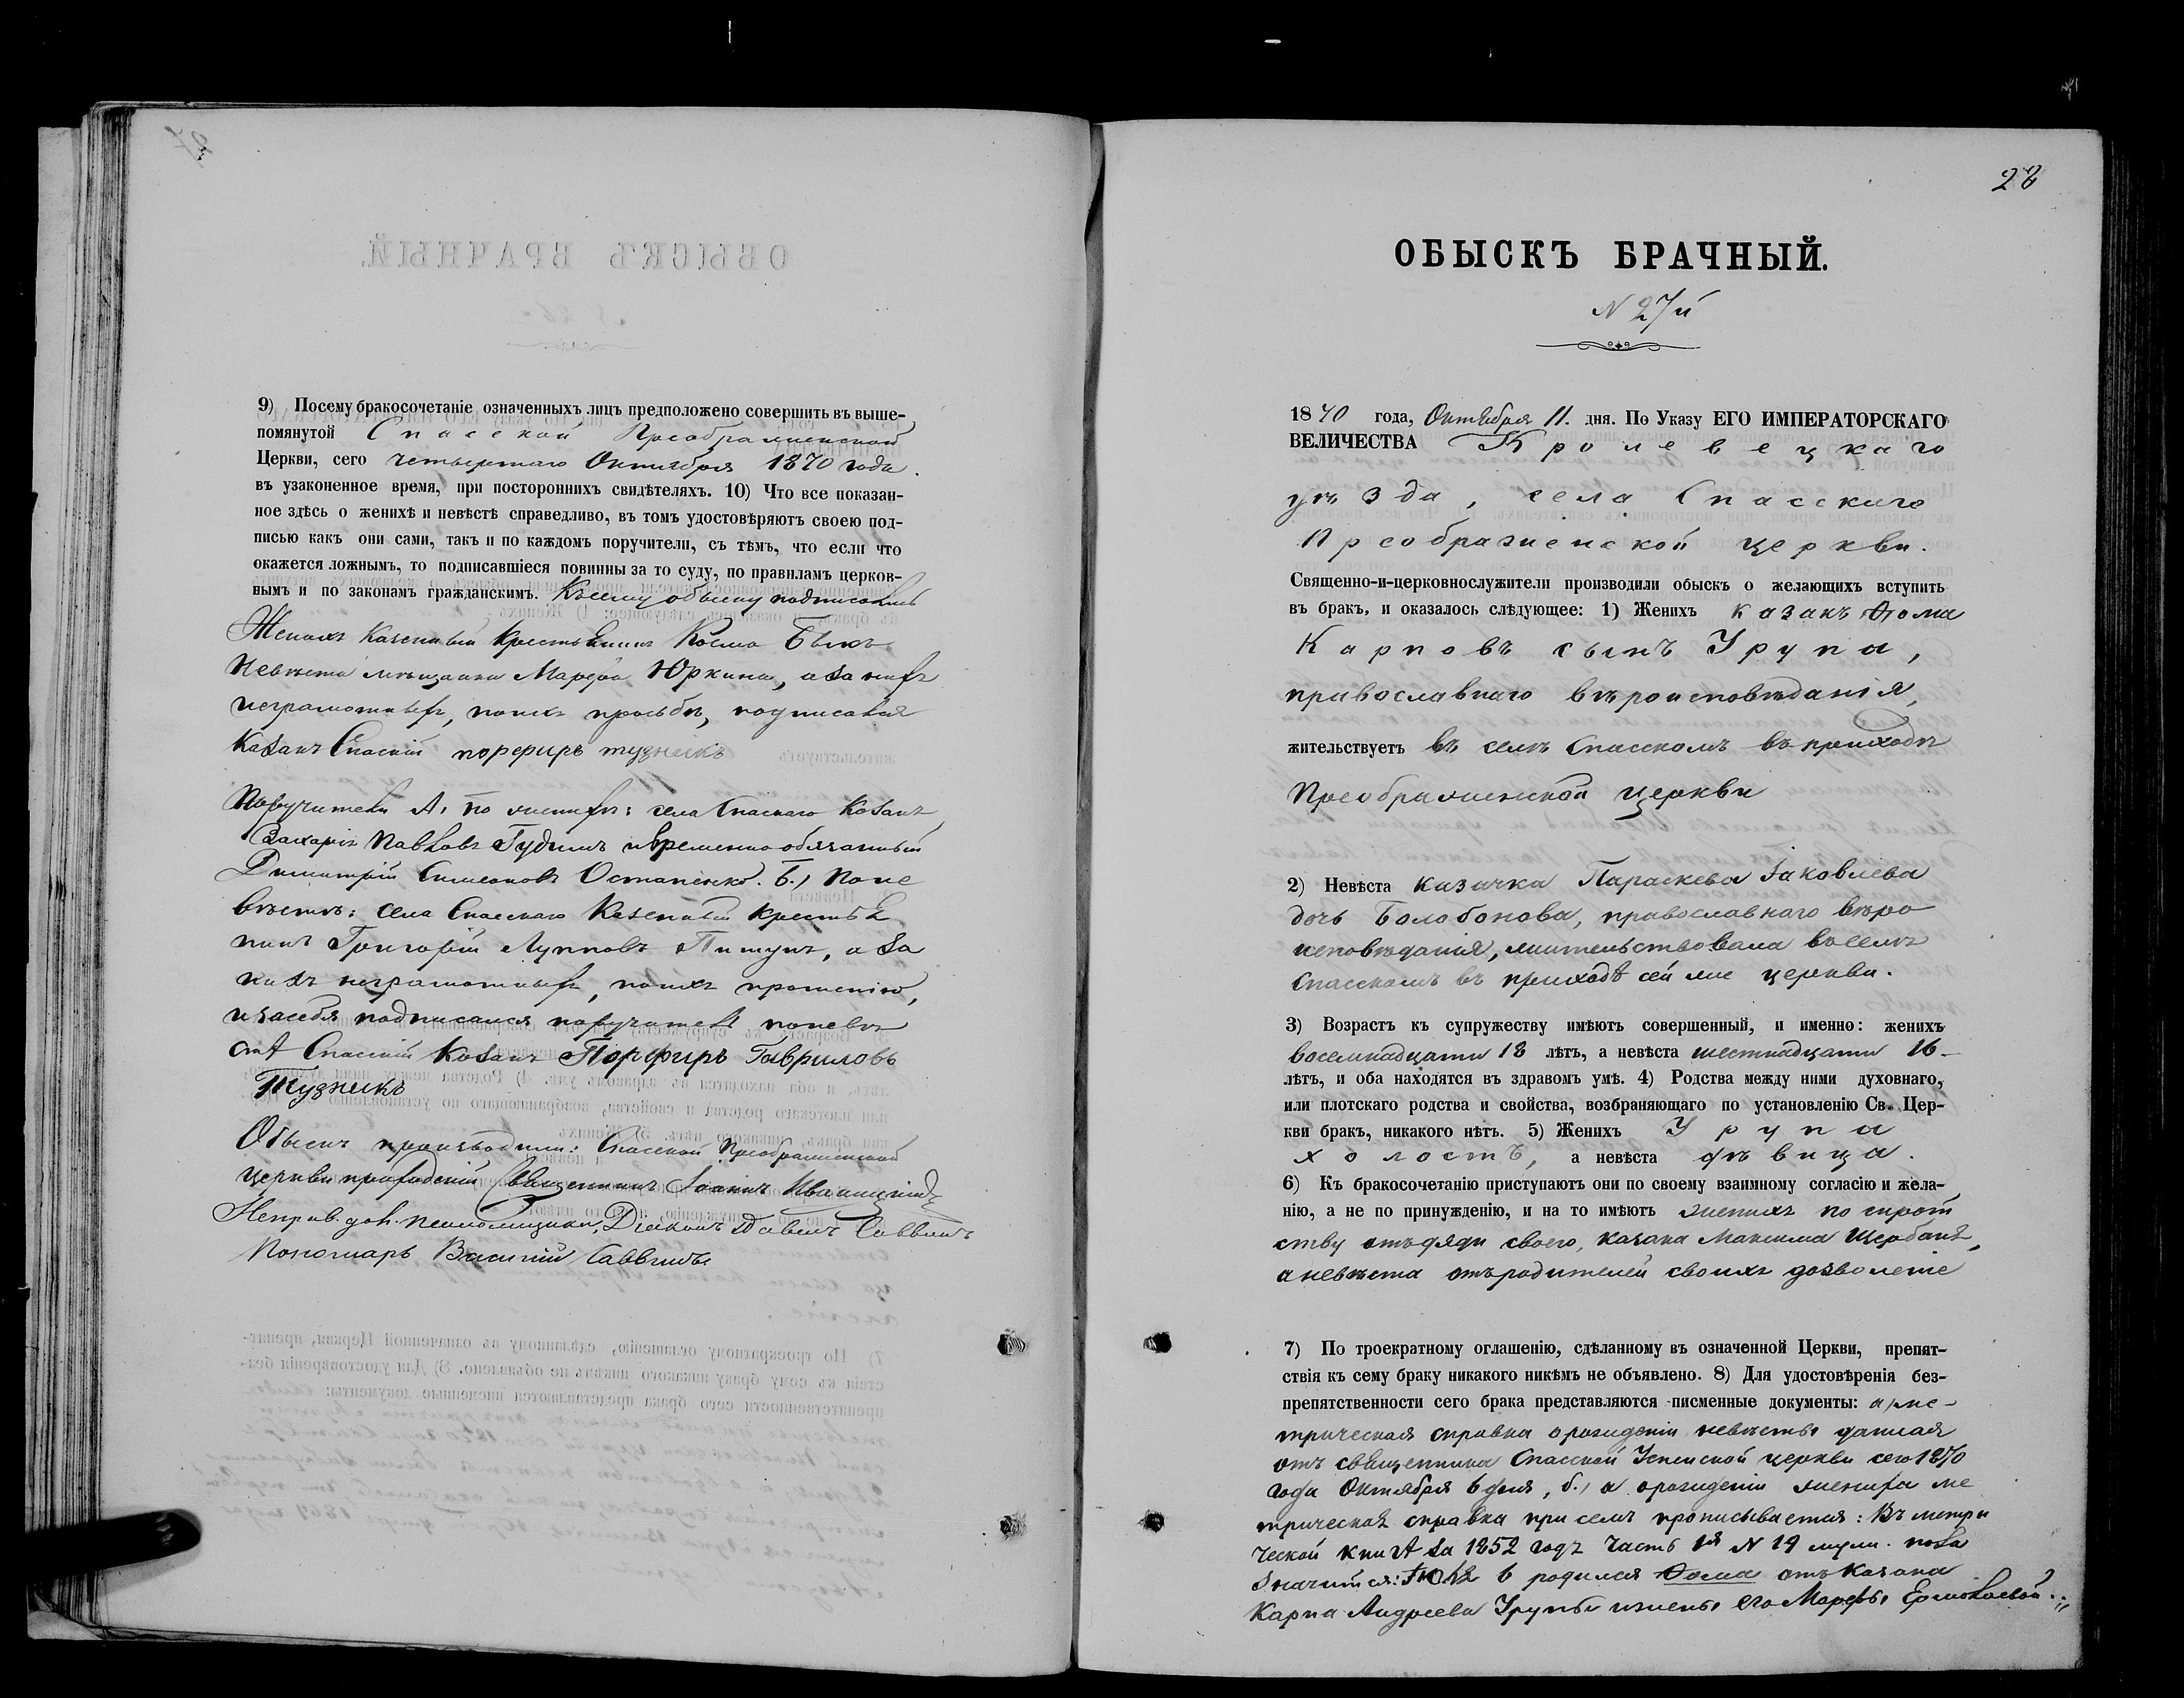 9) Посему бракосочетаніе означенныхъ лицъ предположено совершить въ выше-
помянутой Спасской Преображенской
Церкви, сего четвертаго Октября 1870 года.
въ узаконенное время, при постороннихъ свидѣтеляхъ. 10) Что все показан-
ное здѣсь о женихѣ и невѣстѣ справедливо, въ томъ удостовѣряютъ своею под-
писью какъ они сами, такъ и по каждомъ поручители, съ тѣмъ, что если что
окажется ложнымъ, то подписавшіеся повинны за то суду, по правиламъ церков-
нымъ и по законамъ гражданскимъ. Къ сему обыску подписались
Женихъ казенный крестьянинъ Косма Быкъ
Невѣста мѣщанка Марфа Юркина, а за нихъ
неграмотныхъ, по ихъ просьбѣ, подписался
Казакъ Спаскій порфирь тузникъ
Поручители А, по женихѣ: села Спаскаго Козакъ
Захарій Павловъ Гудимъ и временно обязанный
Димитрій Симеоновъ Остапенко. Б.) По не
вѣстѣ: села Спасскаго Казенный крестья
нинъ Григорій Лупповъ Пищунъ, а за
нихъ неграмотныхъ, по ихъ прошенію,
и за себя подписался поручитель по невѣ
стѣ Спаскій Козакъ Порфирь Гавриловъ
Тузникъ
Обыскъ производили: Спасской Преображенской
церкви приходскій Священникъ Іоаннъ Иваницкій
Діаконъ Павелъ Саввичъ
Пономарь Василій Саввичъ
28
ОБЫСКЪ БРАЧНЫЙ.
N 27й
1870 года, Октября 11. дня. По Указу ЕГО ИМПЕРАТОРСКАГО
ВЕЛИЧЕСТВА Кролевецкаго
уѣзда, села Спасскаго
Преображенской церкви.
Священно-и-церковнослужители производили обыскъ о желающихъ вступить
въ бракъ, и оказалось слѣдующее: 1) Женихъ казакъ Ѳома
Карповъ сынъ Урупа,
православнаго вѣроисповѣданія,
жительствуетъ въ селѣ Спасскомъ въ приходѣ
Преображенской церкви
2) Невѣста казачка Параскева Іаковлева
дочь Болобонова, православнаго вѣро
исповѣданія, жительствовала въ селѣ
Спасскомъ въ приходѣ сей же церкви.
3) Возрастъ къ супружеству имѣютъ совершенный, и именно: женихъ
восемнадцати 18 лѣтъ, а невѣста шестнадцати 16-
лѣтъ, и оба находятся въ здравомъ умѣ. 4) Родства между ними духовнаго,
или плотскаго родства и свойства, возбраняющаго по установленію Св. Цер-
кви бракъ, никакого нѣтъ. 5) Женихъ Урупа
холостъ, а невѣста дѣвица.
6) Къ бракосочетанію приступаютъ они по своему взаимному согласію и жела-
нію, а не по принужденію, и на то имѣютъ женихъ по сирот
ству отъ дяди своего, казака Максима Щербака,
а невѣста отъ родителей своихъ дозволеніе
7) По троекратному оглашенію, сдѣланному въ означенной Церкви, препят-
ствія къ сему браку никакого никѣмъ не объявлено. 8) Для удостовѣренія без-
препятственности сего брака представляются писменные документы: а) ме-
трическая справка о рожденіи невѣсты данная
отъ священника Спасской Успенской церкви сего 1870
года Октября 6 дня, б.) а о рожденіи жениха ме
трическая справка при семъ прописывается: Въ метри
ческой книгѣ за 1852 годъ Часть 1я N 19 муж. пола
значится: 6 родился Ѳома отъ Казака
Карпа Андреева Урупы и жены его Марфы Ермолаевой.